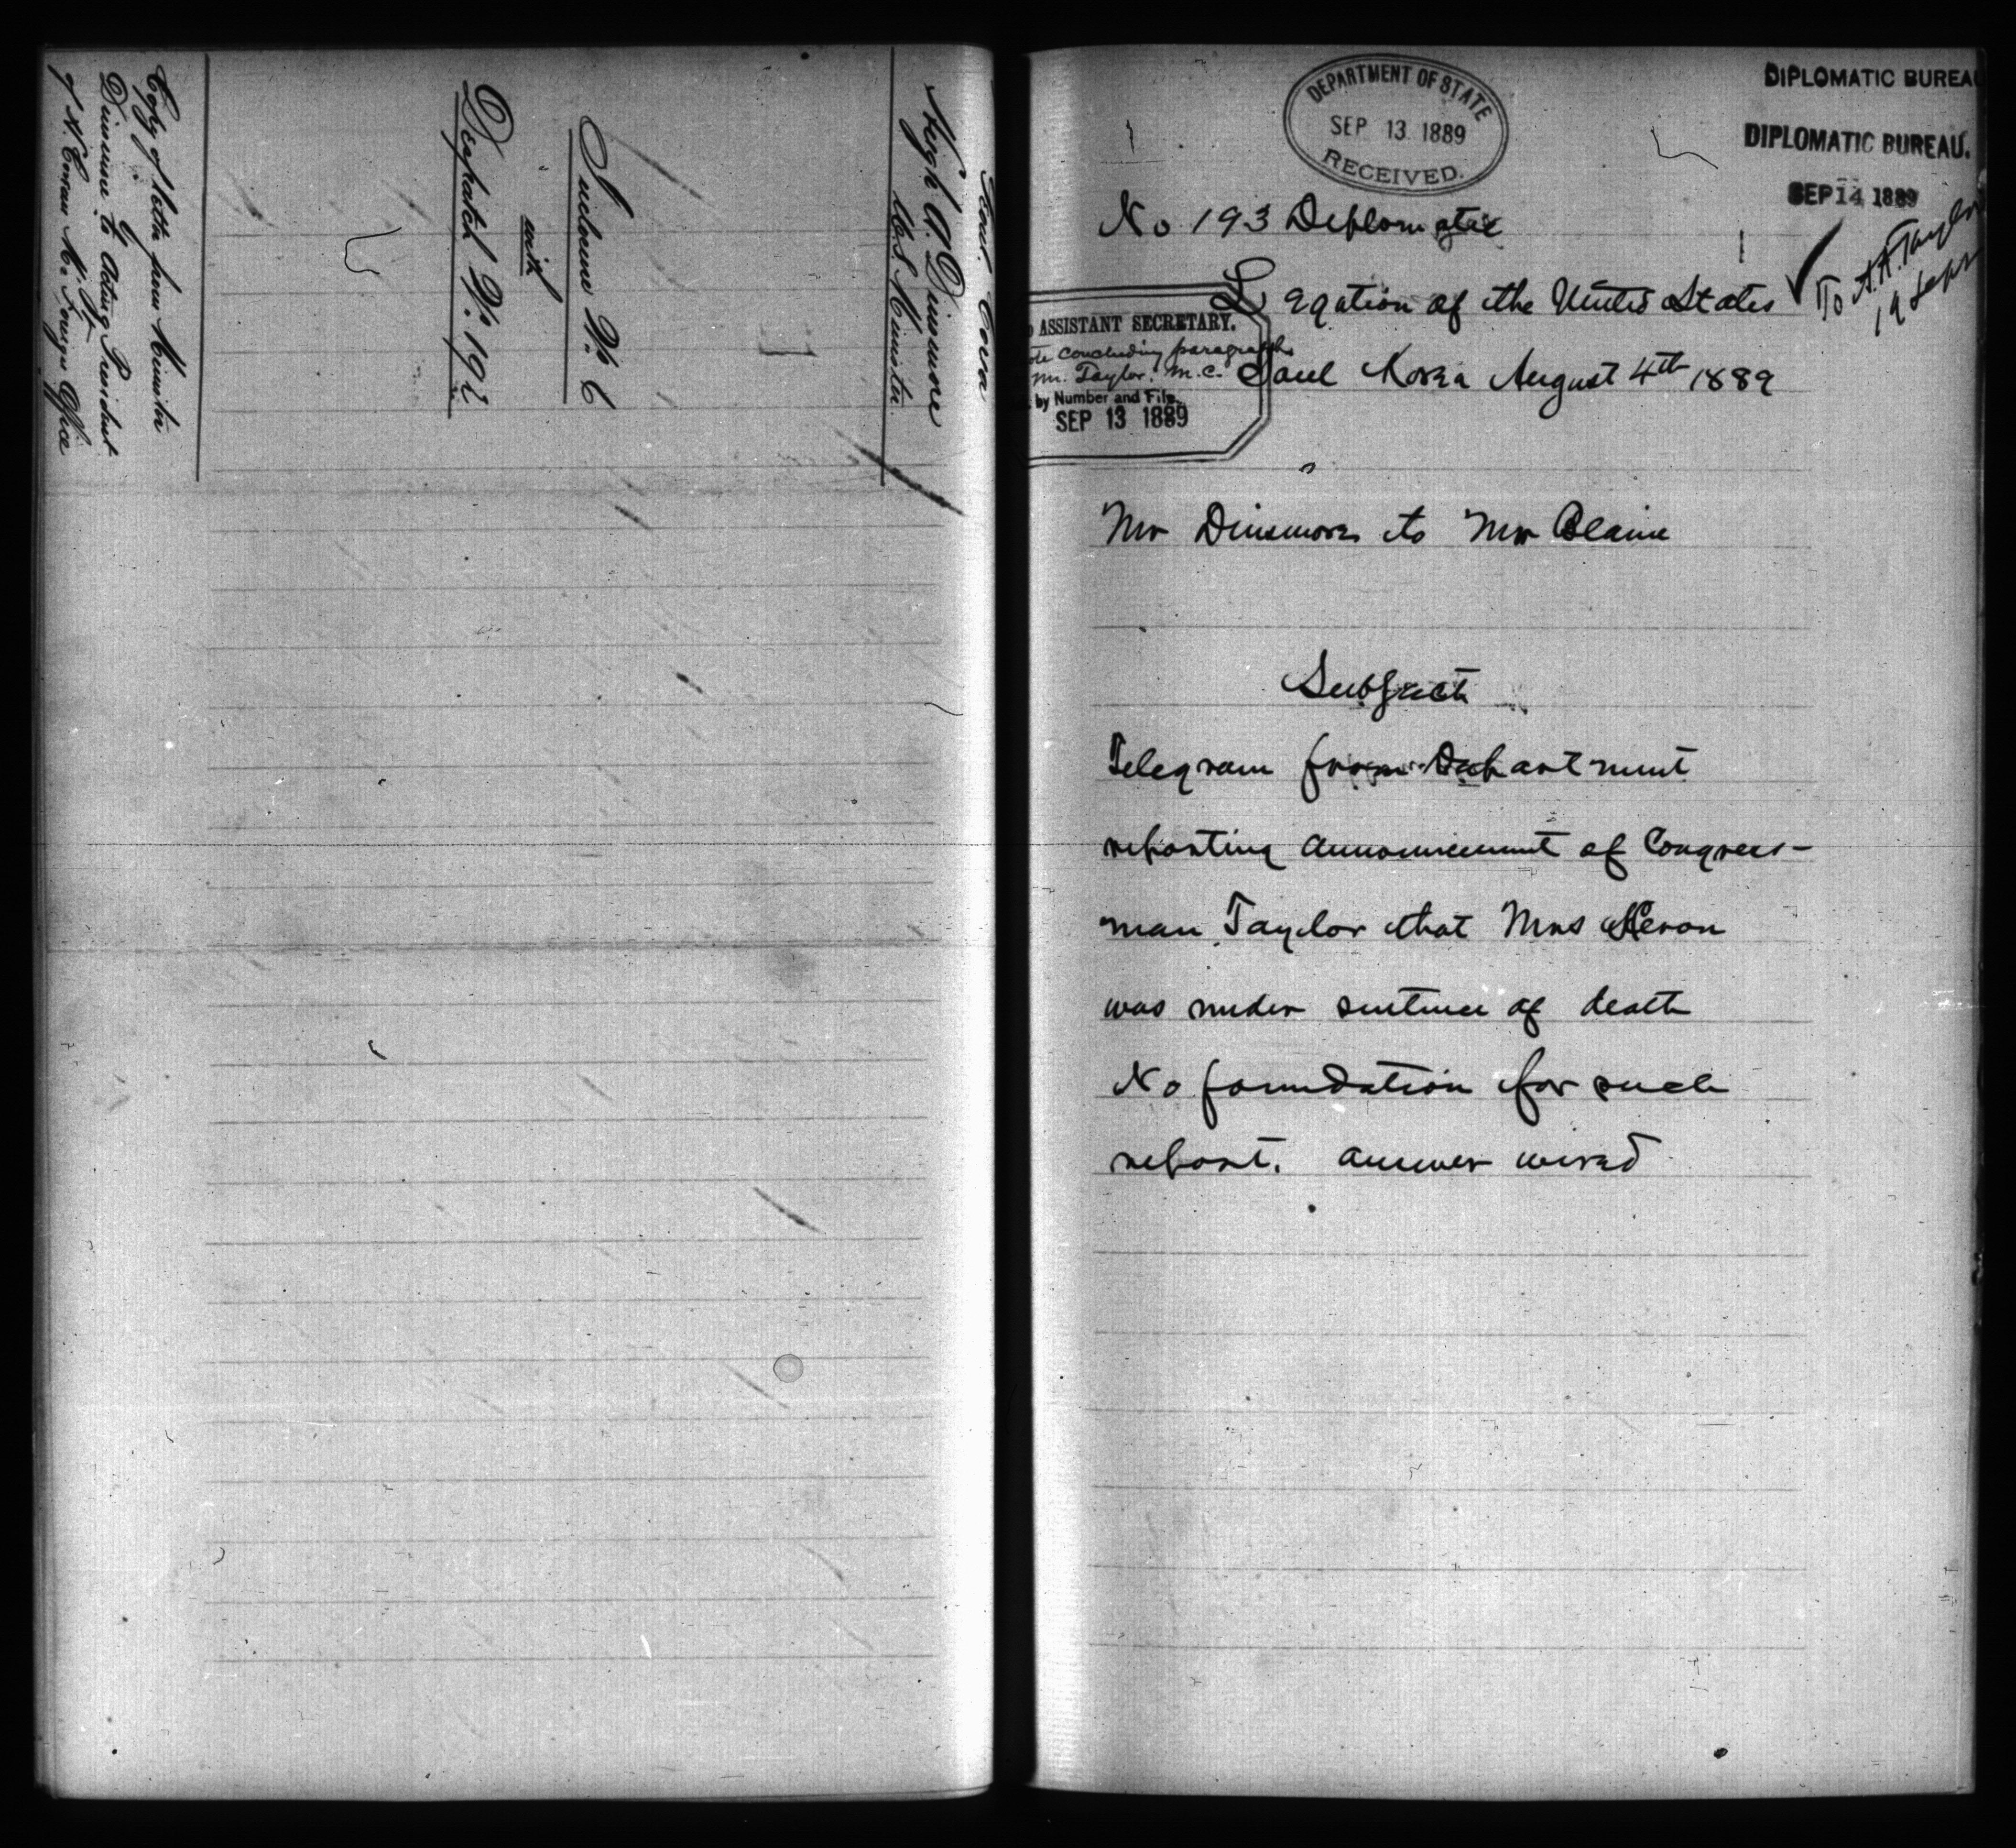 Seoul Corea
Hugh A. Dinsmore
U.S. Minister
Inclosure No. 6
with
Dispatch No. 192
Copy of letter from Minister
Dinsmore to Acting President
of H. Corean M's Foreign Office
DEPARTMENT OF STATE
SEP 13 1889
RECEIVED.
DIPLOMATIC BUREAU
DIPLOMATIC BUREAU.
SEP 14 1889
To A.A. Taylor
19 Sept
No 193 Diplomatic
Legation of the United States
ASSISTANT SECRETARY.
concluding paragraph
Mr. Taylor, M.C.
by Number and File.
SEP 13 1889
Soul Korea August 4th 1889
Mr Dinsmore to Mr Blaine
Subject
Telegram from Department
reporting announcement of Congress-
man Taylor that Mrs Heron
was under sentence of death
No foundation for such
report. answer wired